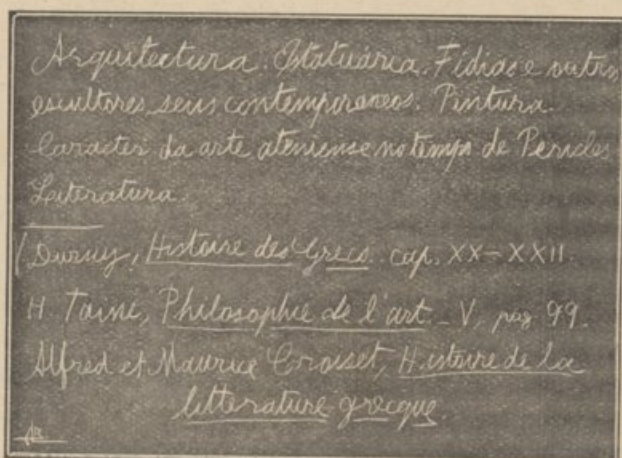 Arquitectura. Statuária. Fídias e outros
escultores seus contemporaneos. Pintura.
Caracter da arte ateniense no tempo de Pericles
Literatura.
Duruy, Histoire des Grecs. cap. XX-XXII.
H. Taine, Philosophie de l'art - V, pag 99.
Alfred et Maurice Croisset, Histoire de la
litterature grecque.